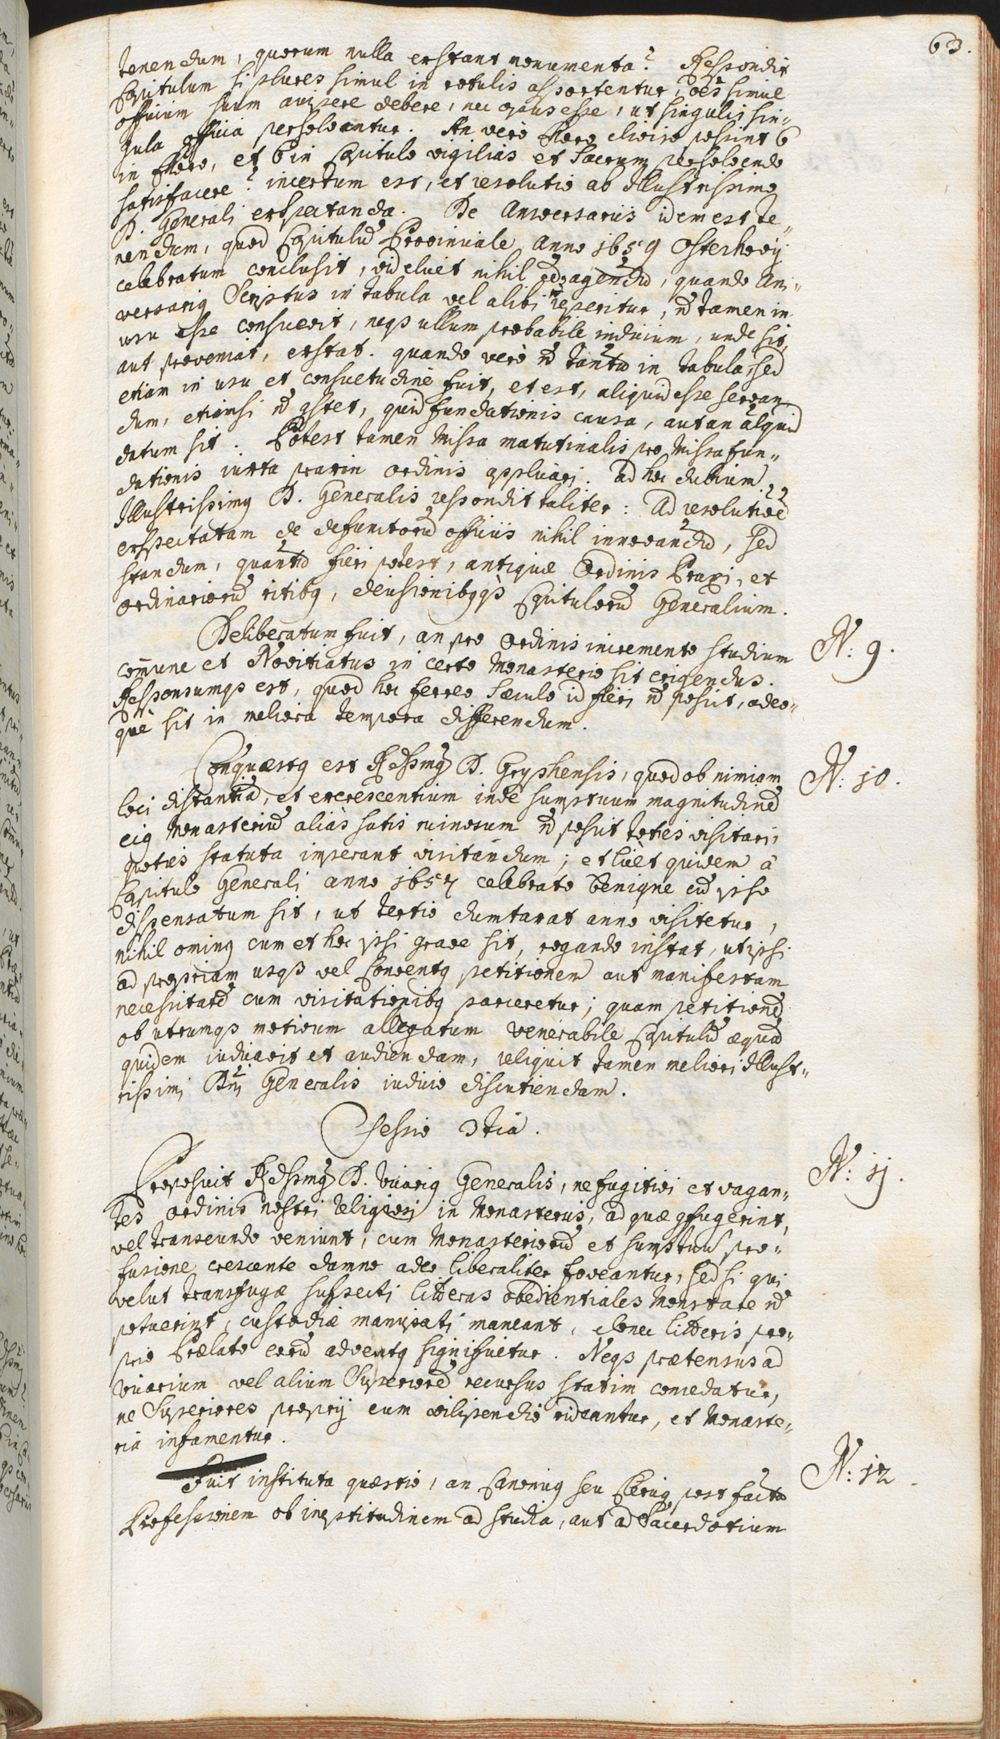 63.
tenendum, quorum nulla extant monumenta? Respondit
Capitulum si plures simul in rotulis apportentur, oēs simul
officium suum accipere debere, nec opus esse, ut singulis sin-
gula officia persolvantur. An vero Choro diviso possint 6
in Choro, et 6 in Capitulo vigilias et Sacrum persolvendo
satisfacere? incertum est, et resolutio ab Illustrissimo
D. Generali exspectanda. De Anversariis idem est te-
nendum, quod Capitulū Provinciale Anno 1659 Osterhovij
celebratum conclusit, videlicet nihil eē agendū, quando Ani-
versariꝰ Scriptus in tabula vel alibi reperitur, nō tamen in
usu esse consuevit, neqꝫ ullum probabile indicium, unde sit,
aut proveniat, extat. quando verò nō tantū in tabula, sed
etiam in usu et consuetudine fuit, et est, aliquid esse servan-
dum, etiamsi nō ꝯstet, quid fundationis causa, aut an aliquid
datum sit. Potest tamen Missa matutinalis pro Missa fun-
dationis iuxta praxin ordinis applicari. Ad hoc dubium
Illustrissimꝰ D. Generalis respondit taliter: Ad resolutionē
exspectatam de defunctorū officiis nihil innovandū, sed
standum, quantū fieri potest, antiquæ Ordinis Praxi, et
ordinariorū ritibꝰ, decisionibꝰqꝫ Capitulorū Generalium.
Deliberatum fuit, an pro Ordinis incremento studium
N: 9.
com̄une et Novitiatus in certo Monasterio sit erigendus.
Responsumqꝫ est, quod hoc ferreo sæculo id fieri nō possit, adeo-
què sit in meliora tempora differendum.
Conquæstꝰ est Rdssmꝰ D. Gryphensis, quod ob nimiam
N: 10.
loci distantiā, et excrescentium inde sumptuum magnitudinē
eiꝰ Monasteriū aliàs satis ruinosum nō possit toties visitari,
quoties statuta imperant visitandum; et licet quidem à
Capitulo Generali anno 1657 celebrato benigne cū ipso
dispensatum sit, ut tertio dumtaxat anno visitetur,
nihil ominꝰ cum et hoc ipsi grave sit, rogando instat, ut ipsi
ad propriam usqꝫ vel Conventꝰ petitionem aut manifestam
necessitatē cum visitationibꝰ parceretur; quam petitionē
ob utrumqꝫ motivum allegatum venerabile Capitulū æquā
quidem iudicavit et audiendam, reliquit tamen meliori Illust-
rissimi Dni Generalis iudicio discutiendam.
Sessio 3tia.
Proposuit Rdssmꝰ D. Vicariꝰ Generalis, ne fugitivi et vagan-
N: 11.
tes ordinis nostri religiosi in Monasteriis, ad quæ ꝯfugerint,
vel transeundo veniunt, cum Monasteriorū et sumptuū pro-
fusione, crescente damno adeo liberaliter foveantur, sed si qui
velut transfugæ suspecti litteras obedientiales monstrare nō
potuerint, custodiæ mancipati maneant, donec litteris pro-
prio Prælato eorū adventꝰ significetur. Neqꝫ prætensus ad
Vicarium vel alium Superiorē recursus statim concedatur,
ne Superiores proprij cum vilipendio rideantur, et Monaste-
ria infamentur.
Fuit instituta quæstio, an Canonicꝰ seu Clericꝰ post factā
N: 12.
Professionem ob ineptitudinem ad studia, aut ad Sacerdotium